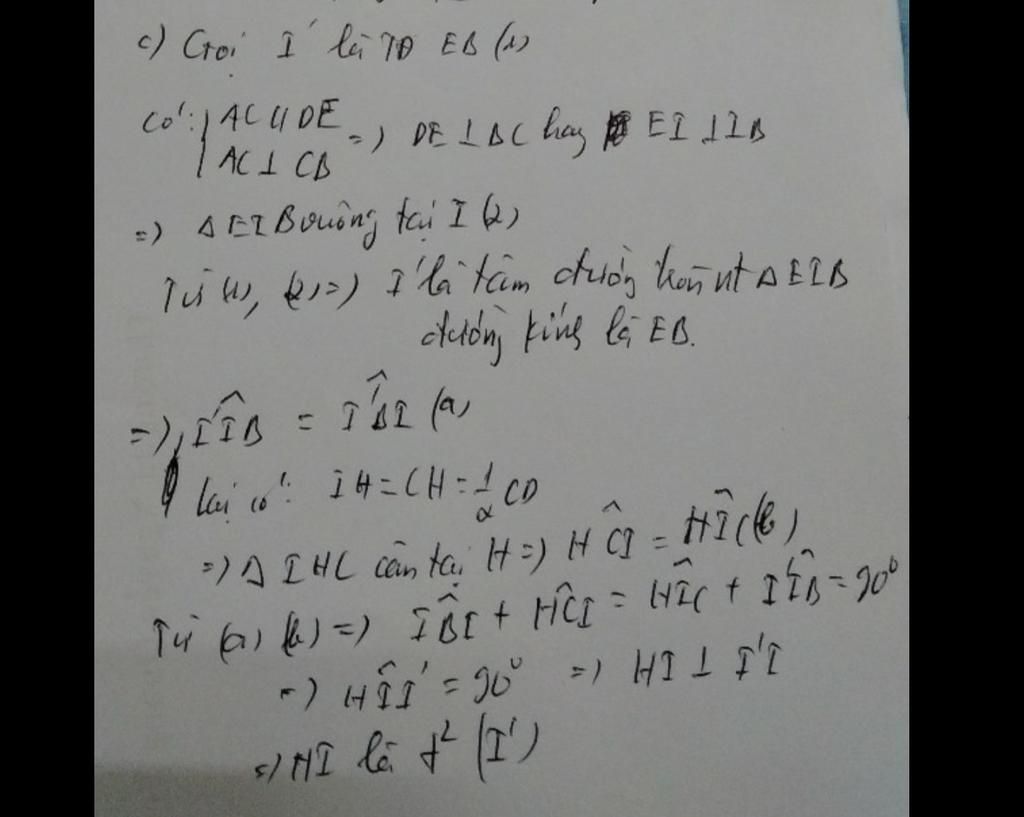 c) Gọi I' là TĐ EB (1)
Có: { AC // DE
AC ⊥ CB => DE ⊥ BC hay EI ⊥ IB
=> Δ EIB vuông tại I (2)
Từ (1), (2) => I' là tâm đường tròn nt Δ EIB
đường kính là EB.
=> I'ÎB = I'B̂I (a)
lại có: IH = CH = 1/2 CD
=> Δ IHC cân tại H => HĈI = HÎC (b)
Từ (a) (b) => I'B̂I + HĈI = HÎC + I'ÎB = 90⁰
=> HÎI' = 90⁰ => HI ⊥ I'I
=> HI là t² (I')